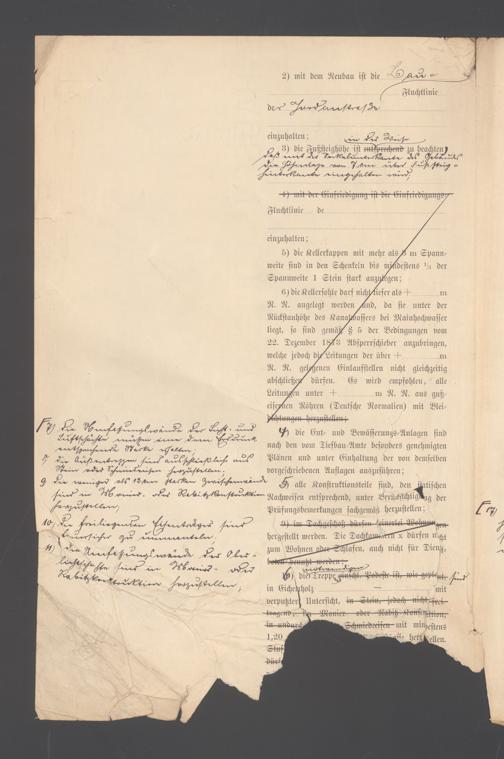 2) mit dem Neubau ist die Bau-
Fluchtlinie
der Jordanstraße
einzuhalten;
in der Weise
3) die Fußsteighöhe ist entsprechend zu beachten,
daß mit der Sockelunterkante des Gebäudes
die Höhenlage von über Fußsteig-
hinterkante eingehalten wird;
4) mit der Einfriedigung ist die Einfriedigungs-
Fluchtlinie de
einzuhalten;
5) die Kellerkappen mit mehr als m Spann-
weite sind in den Schenkeln bis mindestens 1/3 der
Spannweite 1 Stein stark anzulegen;
6) die Kellersohle darf nicht tiefer als + m
N. N. angelegt werden und, da sie unter der
Rückstauhöhe des Kanalwassers bei Mainhochwasser
liegt, so sind gemäß § 5 der Bedingungen vom
22. Dezember 1873 Absperrschieber anzubringen,
welche jedoch die Leitungen der über + m
N. N. gelegenen Einlaufstellen nicht gleichzeitig
abschließen dürfen. Es wird empfohlen, alle
Leitungen unter + m N. N. aus guß-
eisernen Röhren (Deutsche Normalien) mit Blei-
dichtungen herzustellen;
4) die Ent- und Bewässerungs-Anlagen sind
nach den vom Tiefbau-Amte besonders genehmigten
Plänen und unter Einhaltung der von demselben
vorgeschriebenen Auflagen auszuführen;
5) alle Konstruktionsteile sind, den statischen
Nachweisen entsprechend, unter Berücksichtigung der
Prüfungsbemerkungen sachgemäß herzustellen;
9) im Dachgeschoß dürfen keinerlei Wohnungen
hergestellt werden. Die Dachkammern dürfen
zum Wohnen oder Schlafen, auch nicht für Dienst
benutzt werden;
notwendigen
6) die Treppe sind
in Eichenholz mit
verputzter Untersicht, in Stein, jedoch nicht frei-
tragend, in Monier- oder Rabitz-Konstruktion,
Schmiedeisen mit mindestens
1,20 herstellen.
7) die Umfassungswände der Licht- und
Luftschächte müssen eine dem
entsprechende Stärke erhalten,
8 die Außentreppen sind ausschließlich aus
Stein oder Schmiedeisen herzustellen,
9 die weniger als 12 cm starken Zwischenwände
sind in Monier- oder Rabitzkonstruktion
herzustellen,
10, die freiliegenden Eisenträger sind
feuersicher zu ummanteln,
11, die Umfassungswände der Ober-
lichtschächte sind in Monier- oder
Rabitzkonstruktion herzustellen,